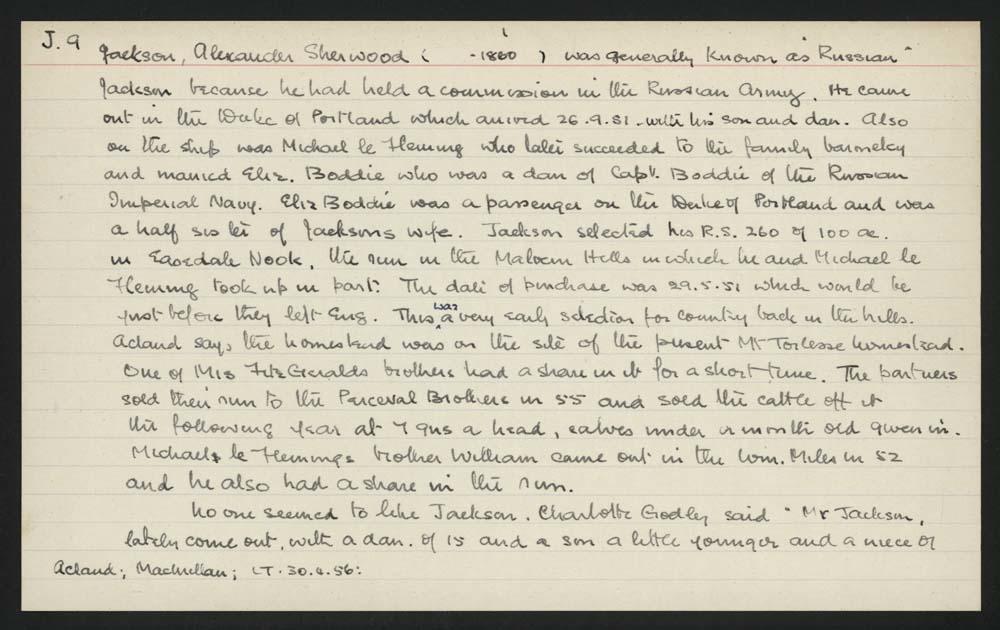 J. 9
Jackson, Alexander Sherwood ( -1860 ) was generally known as "Russian"
Jackson because he had held a commission in the Russian Army. He came
out in the Duke of Portland which arrived 26.9.51 with his son and dau. Also
on the ship was Michael le Fleming who later succeeded to the family baronetcy
and married Eliz. Boddie who was a dau of Capt. Boddie of the Russian
Imperial Navy. Eliz Boddie was a passenger on the Duke of Portland and was
a half sister of Jacksons wife. Jackson selected his R.S. 260 of 100 ac.
in Easedale Nook, the run in the Malvern Hills which he and Michael le
Fleming took up in part. The date of purchase was 29.5.51 which would be
just before they left Eng. This was a very early selection for country back in the hills.
Acland says the homestead was on the site of the present Mt Torlesse homestead.
One of Mrs FitzGeralds brothers had a share in it for a short time. The partners
sold their run to the Perceval Brothers in 55 and sold the cattle off it
the following year at 7 gns a head, calves under a month old given in.
Michael le Flemings brother William came out in the Wm. Miles in 52
and he also had a share in the run.
No one seemed to like Jackson. Charlotte Godley said "Mr Jackson,
lately come out, with a dau. of 15 and a son a little younger and a niece of
Acland; Macmillan; LT. 30.4.56: